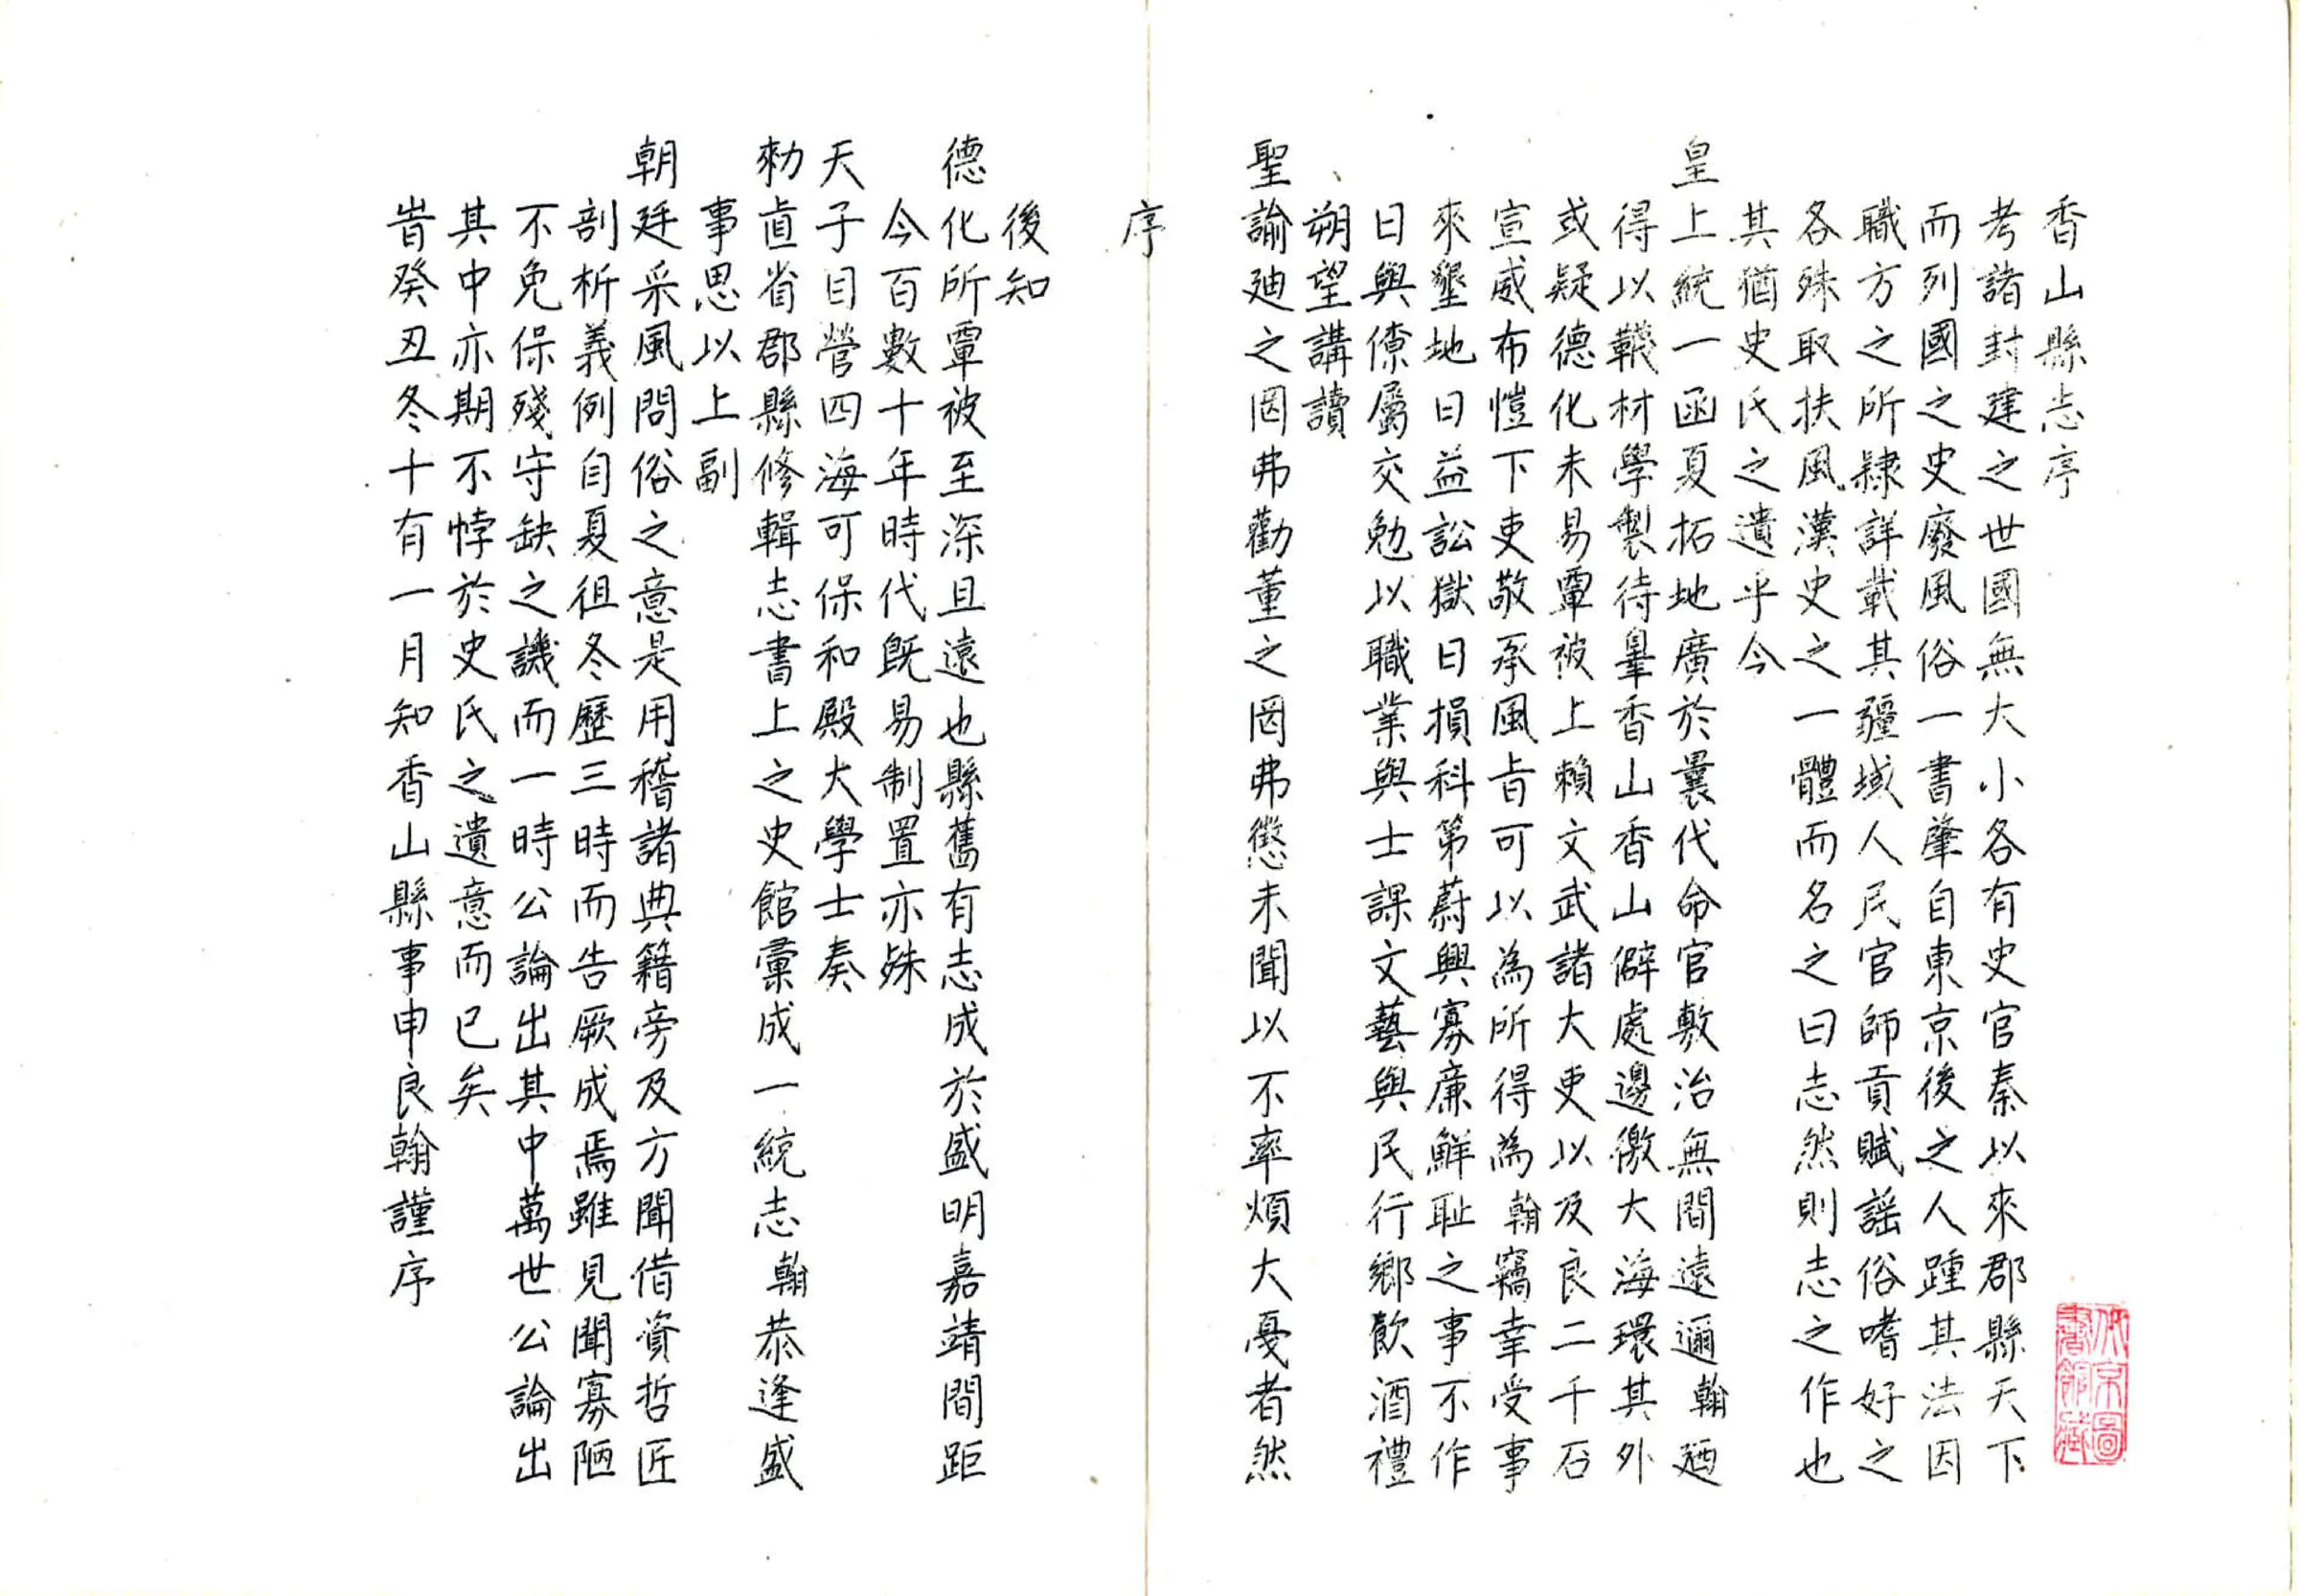 香山縣志序
考諸封建之世國無大小各有史官秦以來郡縣天下
而列國之史廢風俗一書肇自東京後之人踵其法因
職方之所隸詳載其疆域人民官師貢賦謠俗嗜好之
各殊取扶風漢史之一體而名之曰志然則志之作也
其猶史氏之遺乎今
皇上統一函夏拓地廣於曩代命官敷治無間遠邇翰廼
得以韈材學製待辠香山香山僻處邊徼大海環其外
或疑德化未易覃被上賴文武諸大吏以及良二千石
宣威布愷下吏敬承風旨可以為所得為翰竊幸受事
來墾地日益訟獄日損科第蔚興寡廉鮮恥之事不作
日與僚屬交勉以職業與士課文藝與民行鄉飲酒禮
朔望講讀
聖諭廸之罔弗勸董之罔弗懲未聞以不率煩大憂者然
序
後知
德化所覃被至深且遠也縣舊有志成於盛明嘉靖間距
今百數十年時代既易制置亦殊
天子目營四海可保和殿大學士奏
勑直省郡縣修輯志書上之史館彙成一統志翰恭逢盛
事思以上副
朝廷采風問俗之意是用稽諸典籍旁及方聞借資哲匠
剖析義例自夏徂冬歷三時而告厥成焉雖見聞寡陋
不免保殘守缺之譏而一時公論出其中萬世公論出
其中亦期不悖於史氏之遺意而已矣
旹癸丑冬十有一月知香山縣事申良翰謹序
京圖
書館藏